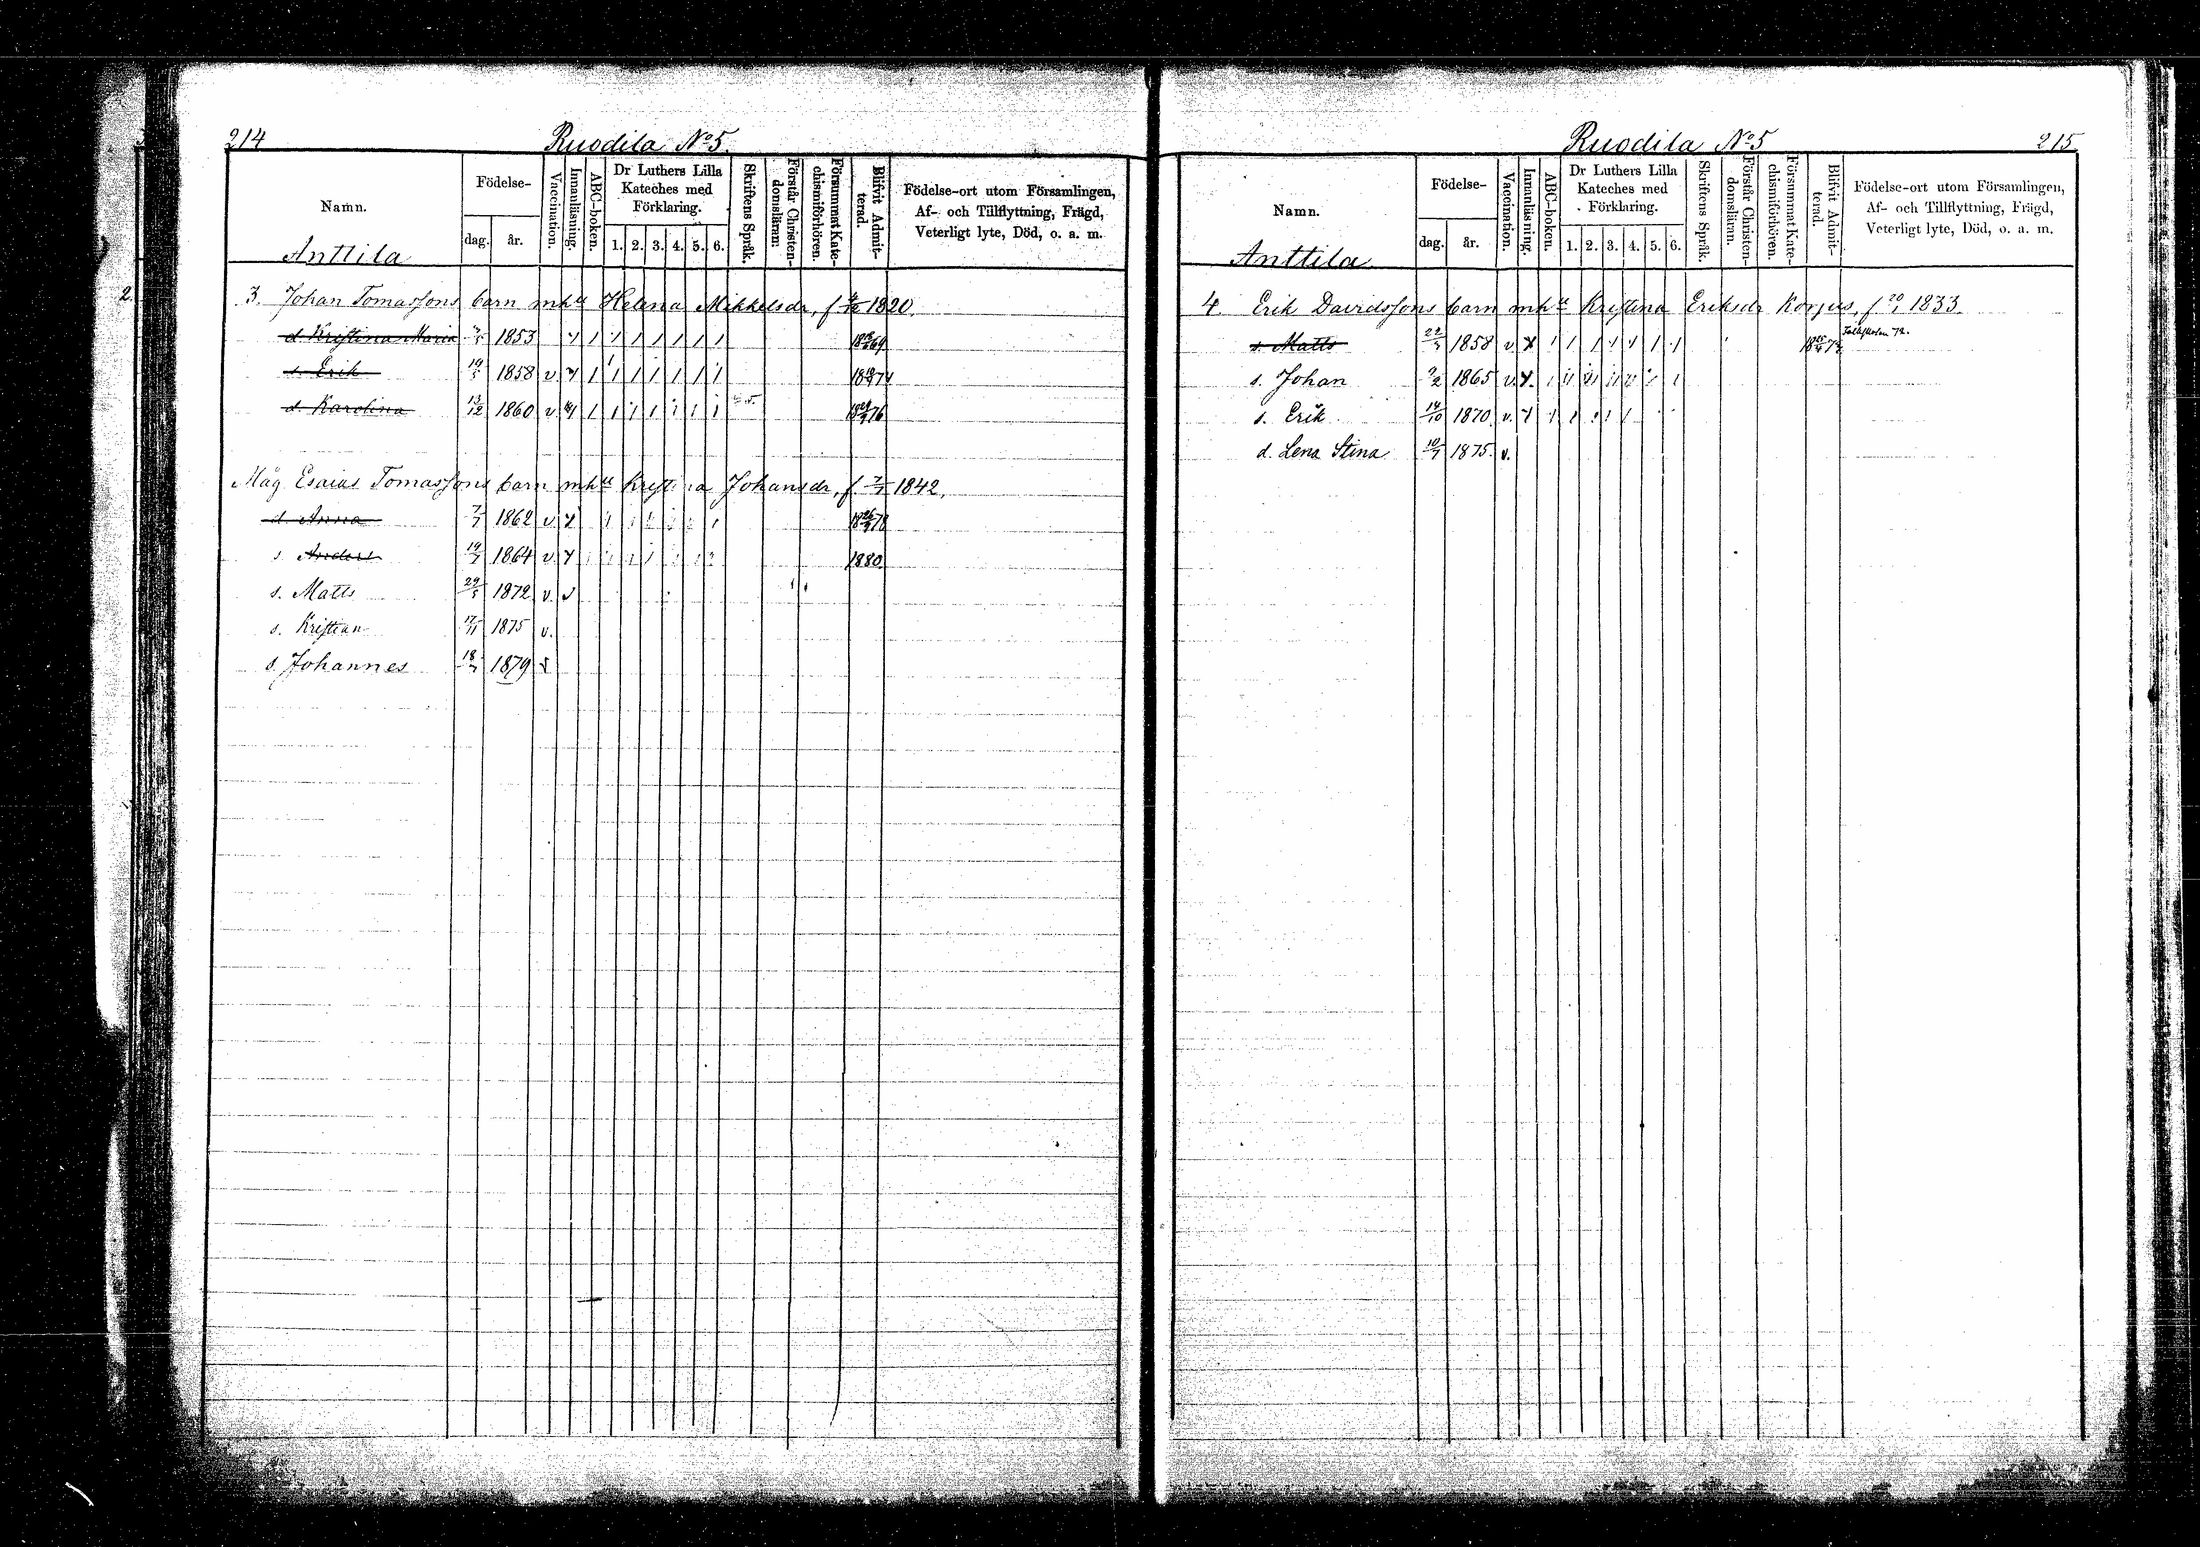 214
Ruodila No 5.
Namn.
Födelse-
dag.
år.
Vaccination.
Innanläsning.
ABC-boken.
Dr Luthers Lilla Kateches med Förklaring.
1. 2. 3. 4. 5. 6.
Skriftens Språk.
Förstår Christendomsläran.
Försummat Katechismiförhören.
Blifvit Admitterad.
Födelse-ort utom Församlingen, Af- och Tillflyttning, Frägd, Veterligt lyte, Död, o. a. m.
Anttila
3. Johan Tomassons barn mhu Helena Mikkelsdr, f. 1820.
d Kristina Maria 1853 1869
s. Erik 19/5 1858 v. 1874
d Karolina 13/12 1860 v. 1876
Måg Esaias Tomassons barn mhu Kristina Johansdr, f. 7/7 1842.
d Anna 7/7 1862 v. 1878
s Anders 19/7 1864 v 1880
s. Matts 29/5 1872 v.
s. Kristian 17/11 1875 v.
s. Johannes 18/7 1879
Ruodila No 5
215
Namn.
Födelse-
dag.
år.
Vaccination.
Innanläsning.
ABC-boken.
Dr Luthers Lilla Kateches med Förklaring.
1. 2. 3. 4. 5. 6.
Skriftens Språk.
Förstår Christendomsläran.
Försummat Katechismiförhören.
Blifvit Admitterad.
Födelse-ort utom Församlingen, Af- och Tillflyttning, Frägd, Veterligt lyte, Död, o. a. m.
Anttila
4. Erik Davidssons barn mhu Kristina Eriksdr Korpus, f. 20/1 1833.
s. Matts 22/3 1858 v
s. Johan 9/2 1865 v.
s. Erik 14/10 1870 v.
d. Lena Stina 10/7 1875. v.
2.